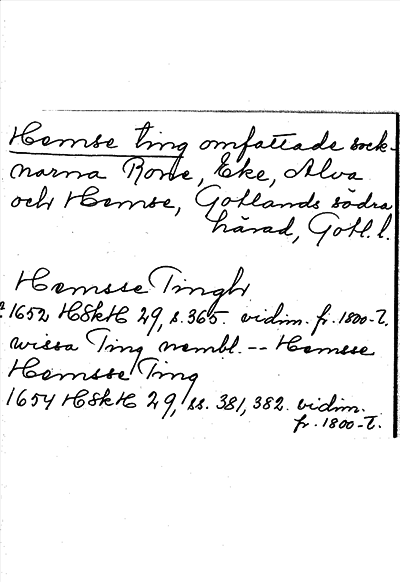 Hemse ting omfattade sock-
narna Rone, Eke, Alva
och Hemse, Gotlands södra
härad, Gotl. l.
Hemsse Tingh
1652 HSkH 29, s. 365. vidim. fr. 1800-t.
wissa Ting nembl. -- Hemsse
Hemsse Ting
1654 HSkH 29, ss. 381, 382. vidim.
fr. 1800-t.